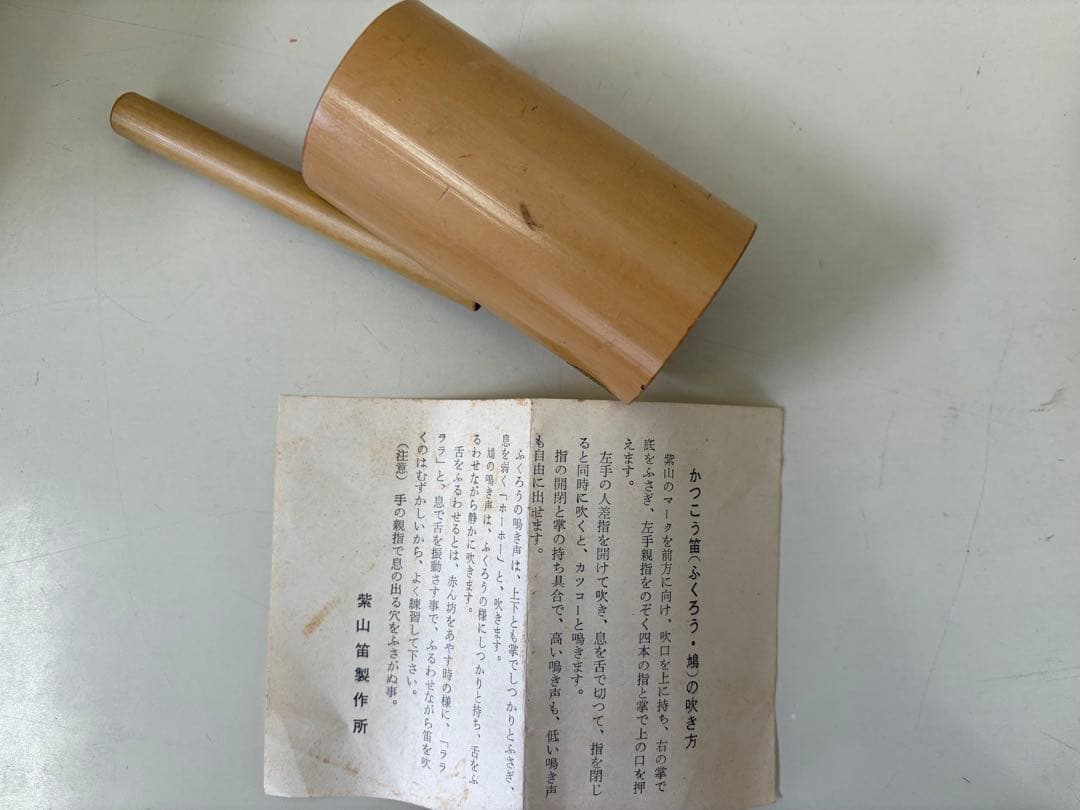 かつこう笛(ふくろう・鳩)の吹き方
紫山のマークを前方に向け、吹口を上に持ち、右の掌で
底をふさぎ、左手親指をのぞく四本の指と掌で上の口を押
えます。
左手の人差指を開けて吹き、息を舌で切つて、指を閉じ
ると同時に吹くと、カツコーと鳴きます。
指の開閉と掌の持ち具合で、高い鳴き声も、低い鳴き声
も自由に出せます。
ふくろうの鳴き声は、上下とも掌でしつかりとふさぎ、
息を弱く「ホーホー」と、吹きます。
鳩の鳴き声は、ふくろうの様にしつかりと持ち、舌をふ
るわせながら静かに吹きます。
舌をふるわせるとは、赤ん坊をあやす時の様に、「ララ
ララ」と、息で舌を振動さす事で、ふるわせながら笛を吹
くのはむずかしいから、よく練習して下さい。
(注意) 手の親指で息の出る穴をふさがぬ事。
紫山笛製作所